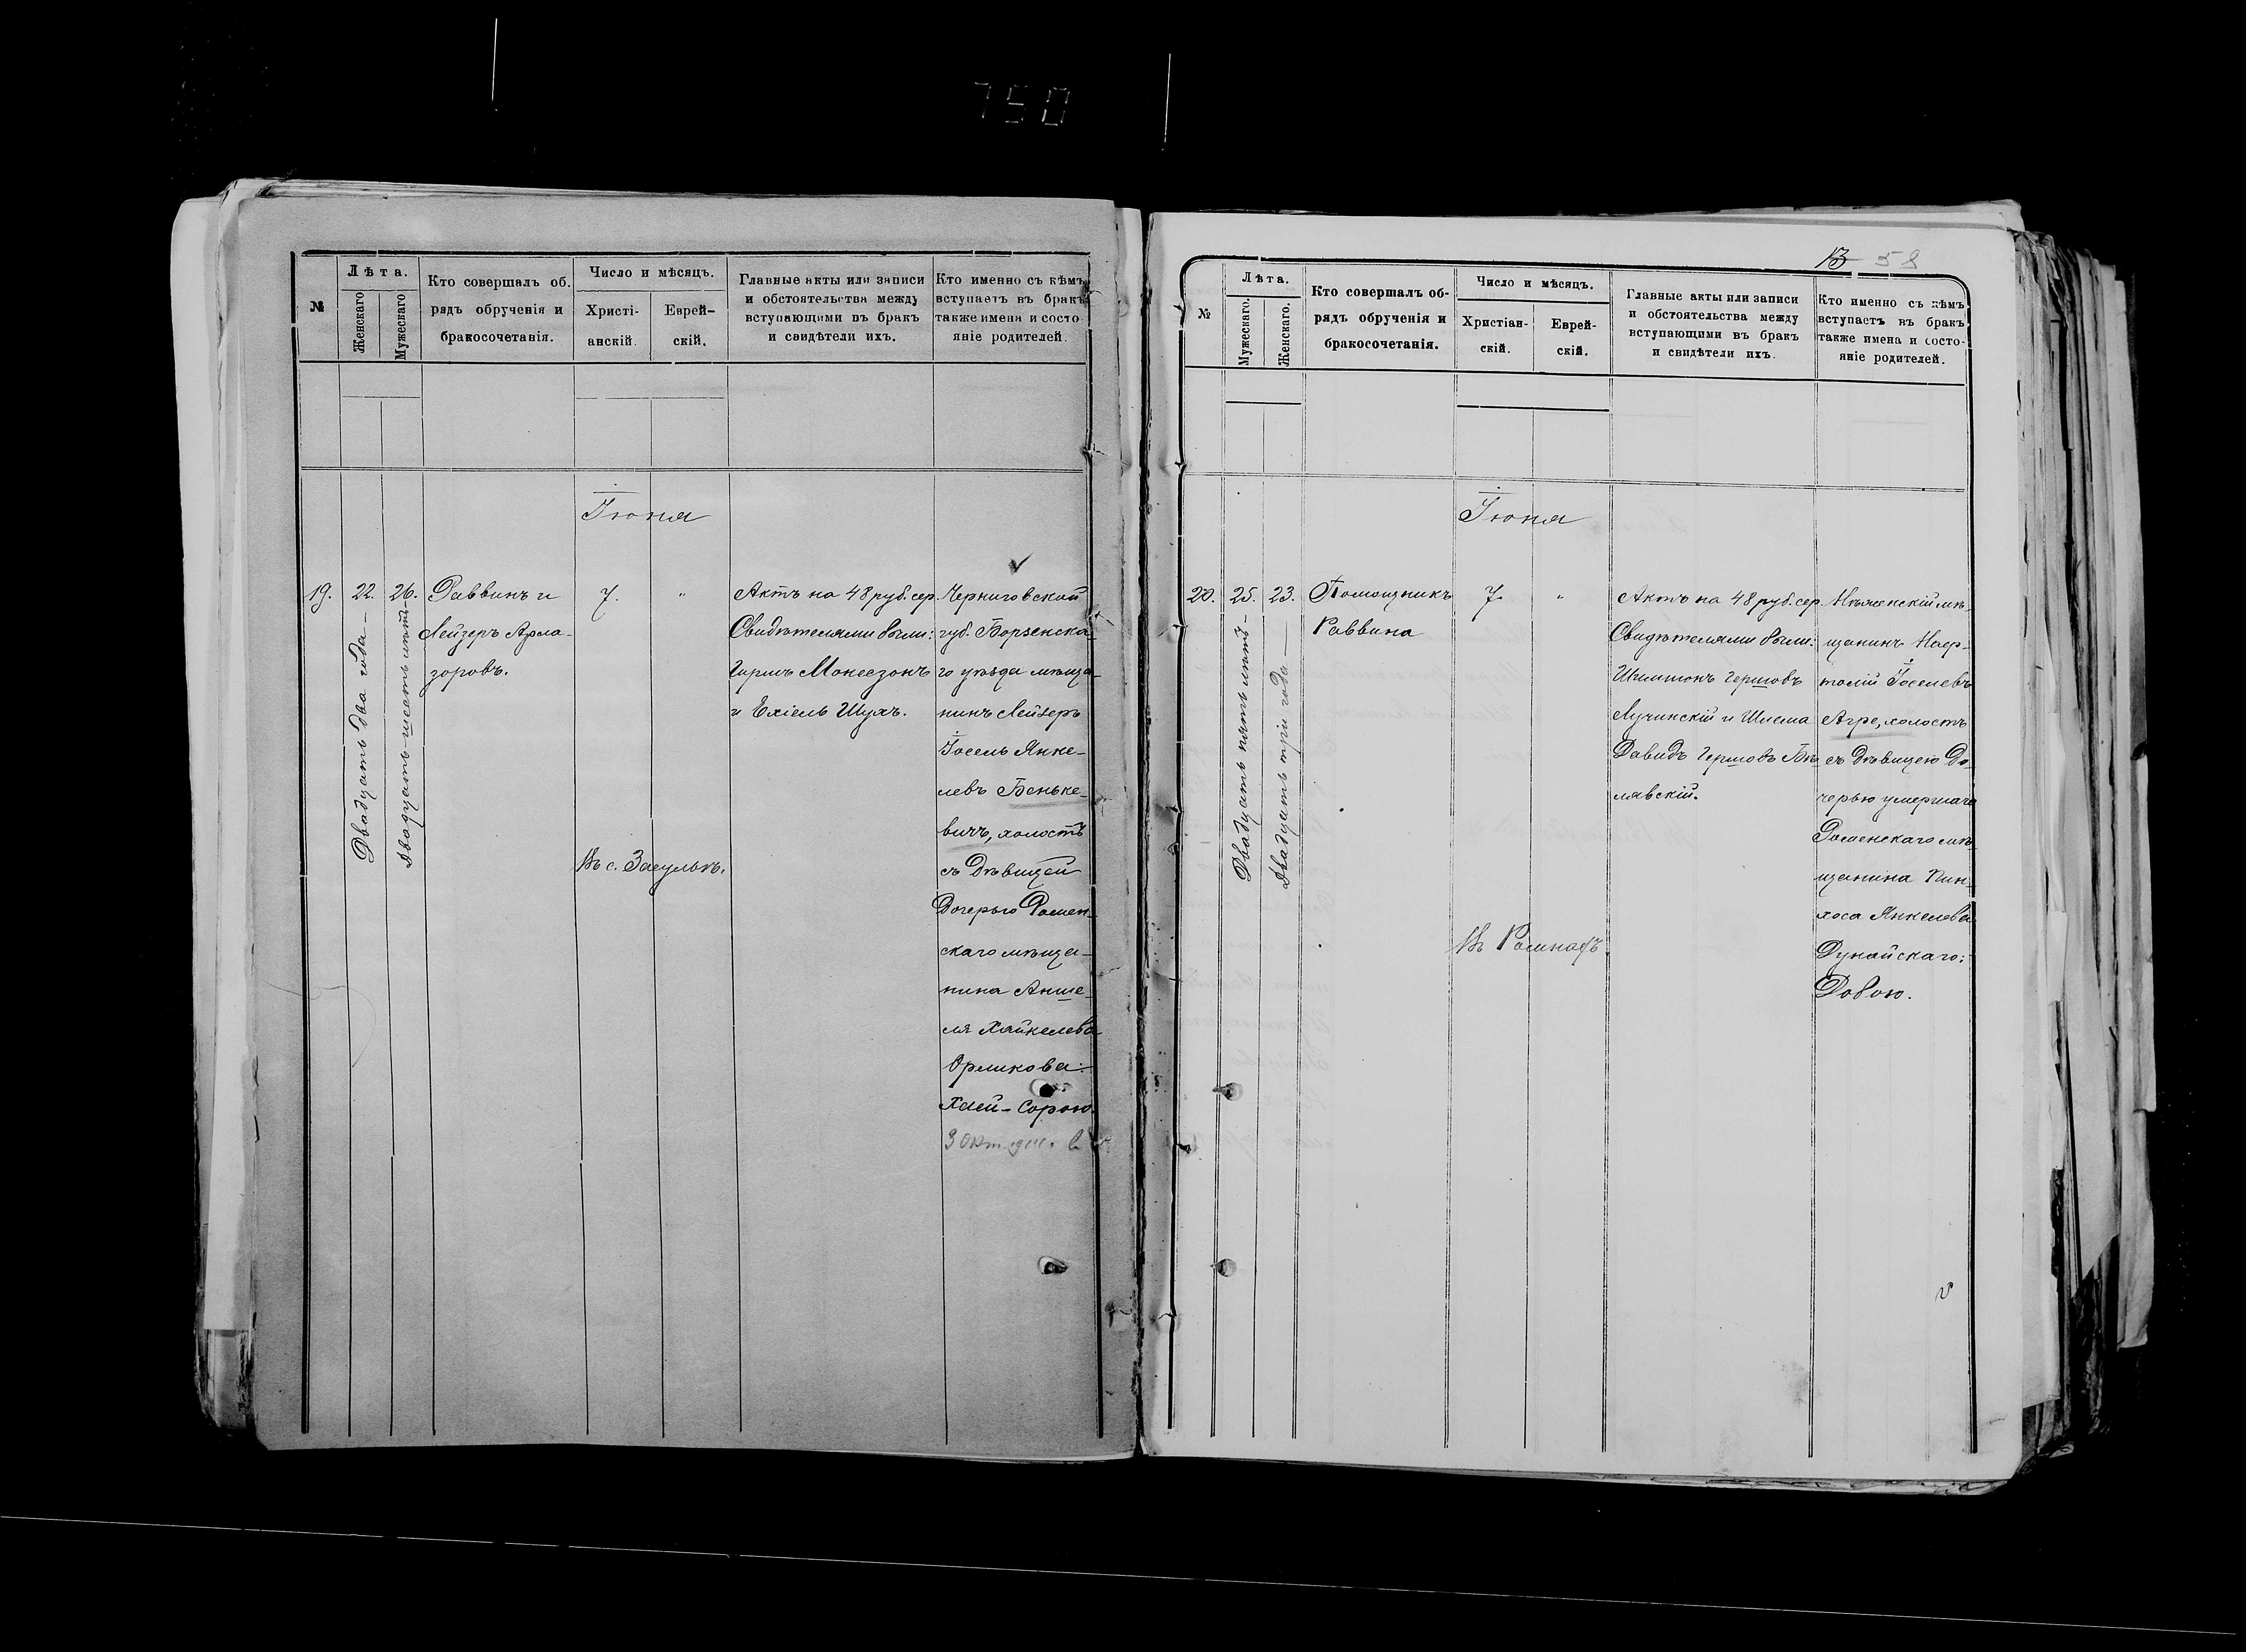 750
№
Лѣта.
Женскаго
Мужескаго
Кто совершалъ об.
рядъ обрученія и
бракосочетанія.
Число и мѣсяцъ.
Христі-
анскій.
Еврей-
скій.
Главные акты или записи
и обстоятельства между
вступающими въ бракъ
и свидѣтели ихъ.
Кто именно съ кѣмъ
вступаетъ въ бракъ
также имена и состо-
яніе родителей.
Іюня
19.
22.
Двадцать два года —
26.
Двадцать шесть лѣтъ
Раввинъ и
Лейзеръ Арла-
зоровъ.
7.
"
Въ с. Засульѣ.
Актъ на 48 руб. сер.
Свидѣтелями были:
Гиршъ Монесзонъ
и Ехіель Шухъ.
Черниговской
губ. Борзенска-
го уѣзда мѣща-
нинъ Лейзеръ
Іосель Янке-
левъ Беньке-
вичъ, холостъ
съ Дѣвицей
Дочерью Ромен-
скаго мѣща-
нина Анше-
ля Хайкелева
Орликова:
Хаей-Сорою.
13 58
№
Лѣта.
Мужескаго.
Женскаго.
Кто совершалъ об-
рядъ обрученія и
бракосочетанія.
Число и мѣсяцъ.
Христіан-
скій.
Еврей-
скій.
Главные акты или записи
и обстоятельства между
вступающими въ бракъ
и свидѣтели ихъ.
Кто именно съ кѣмъ
вступаетъ въ бракъ
также имена и состо-
яніе родителей.
Іюня
20.
25.
Двадцать пять лѣтъ -
23.
Двадцать три года —
Помощникъ
Раввина
7.
"
Въ Ромнахъ.
Актъ на 48 руб. сер.
Свидѣтелями были:
Шимшонъ Гершовъ
Лучинскій и Шлема
Давидъ Гершовъ Бѣ
лявскій.
Нѣженскій мѣ-
щанинъ Наф-
толій Іоселевъ
Агре, холостъ
съ Дѣвицею До-
черью умершаго
Роменскаго мѣ-
щанина Пин-
хоса Янкелева
Дунайскаго:
Добою.